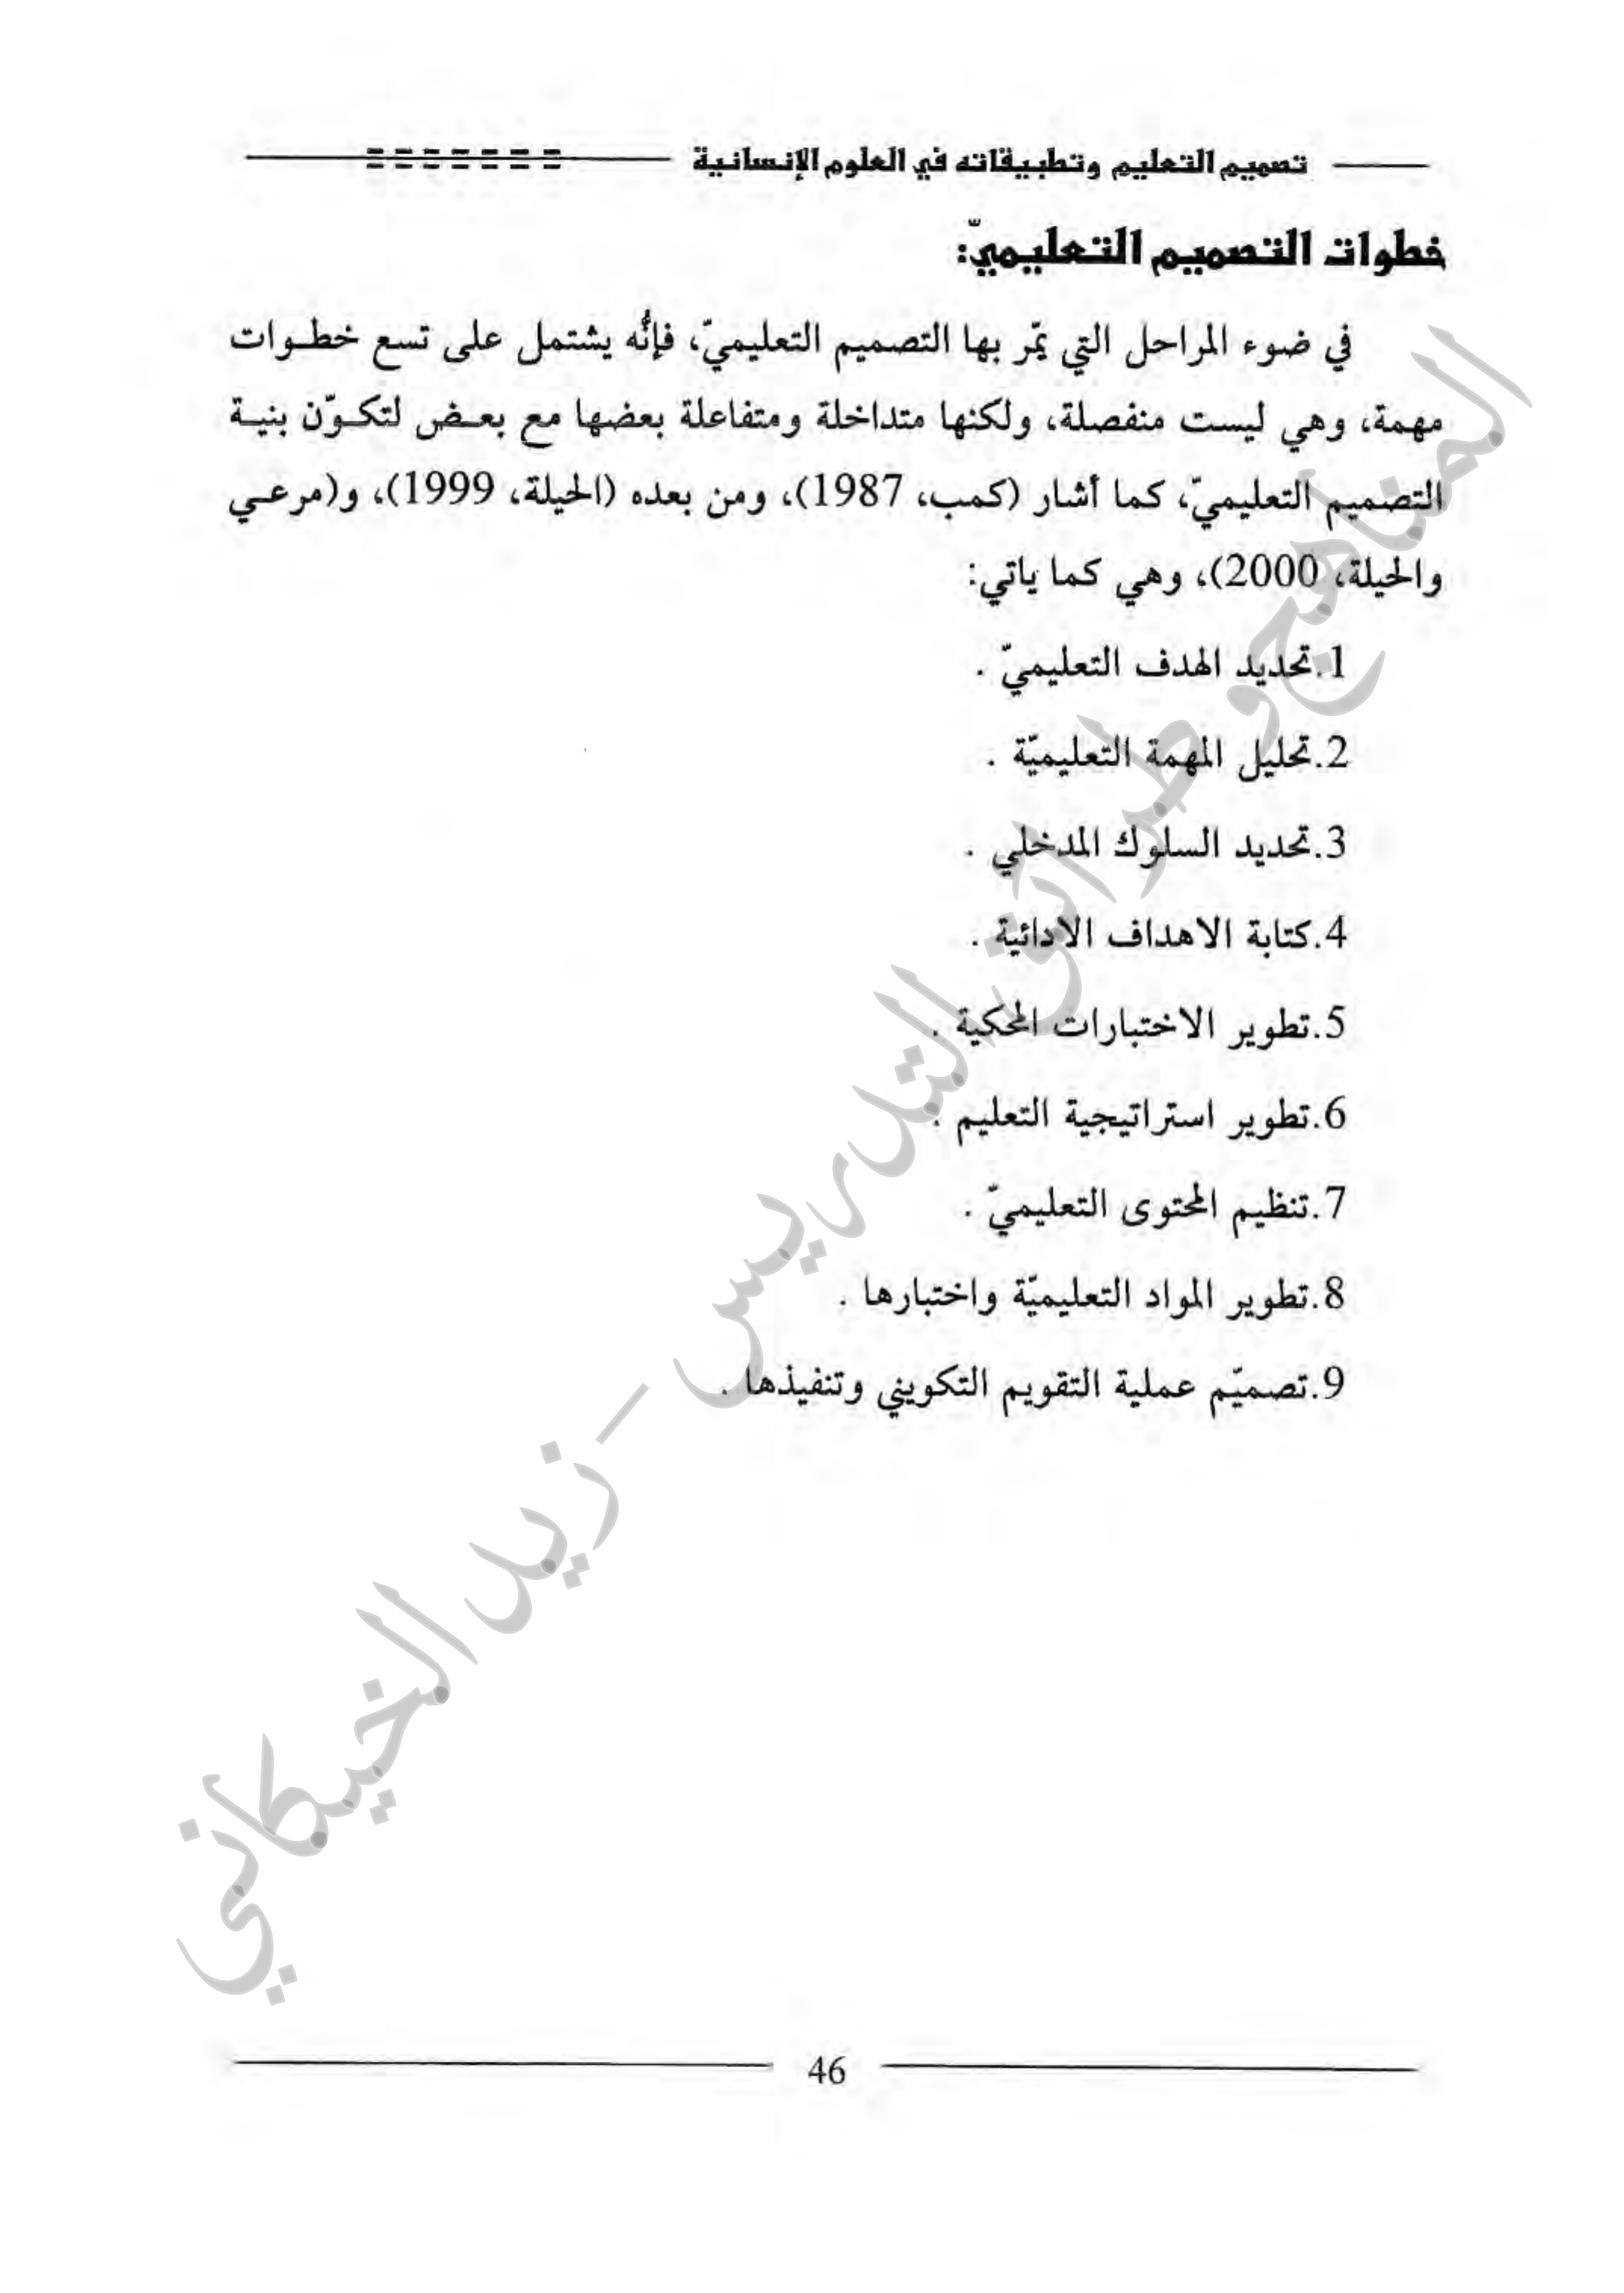 تصميم التعليم وتطبيقاته في العلوم الإنسانية
خطوات التصميم التعليميّ:
في ضوء المراحل التي يمّر بها التصميم التعليميّ، فإنُّه يشتمل على تسع خطـوات
مهمة، وهي ليست منفصلة، ولكنها متداخلة ومتفاعلة بعضها مع بعـض لتكـوّن بنيـة
التصميم التعليميّ، كما أشار (كمب، 1987)، ومن بعده (الحيلة، 1999)، و(مرعـي
والحيلة، 2000)، وهي كما ياتي:
1.تحديد الهدف التعليميّ .
2.تحليل المهمة التعليميّة .
3.تحديد السلوك المدخلي .
4.كتابة الاهداف الادائية .
5.تطوير الاختبارات المحكية .
6.تطوير استراتيجية التعليم .
7.تنظيم المحتوى التعليميّ .
8.تطوير المواد التعليميّة واختبارها .
9.تصميّم عملية التقويم التكويني وتنفيذها .
المناهج وطرائق التدريس - زيد الخيكاني
46